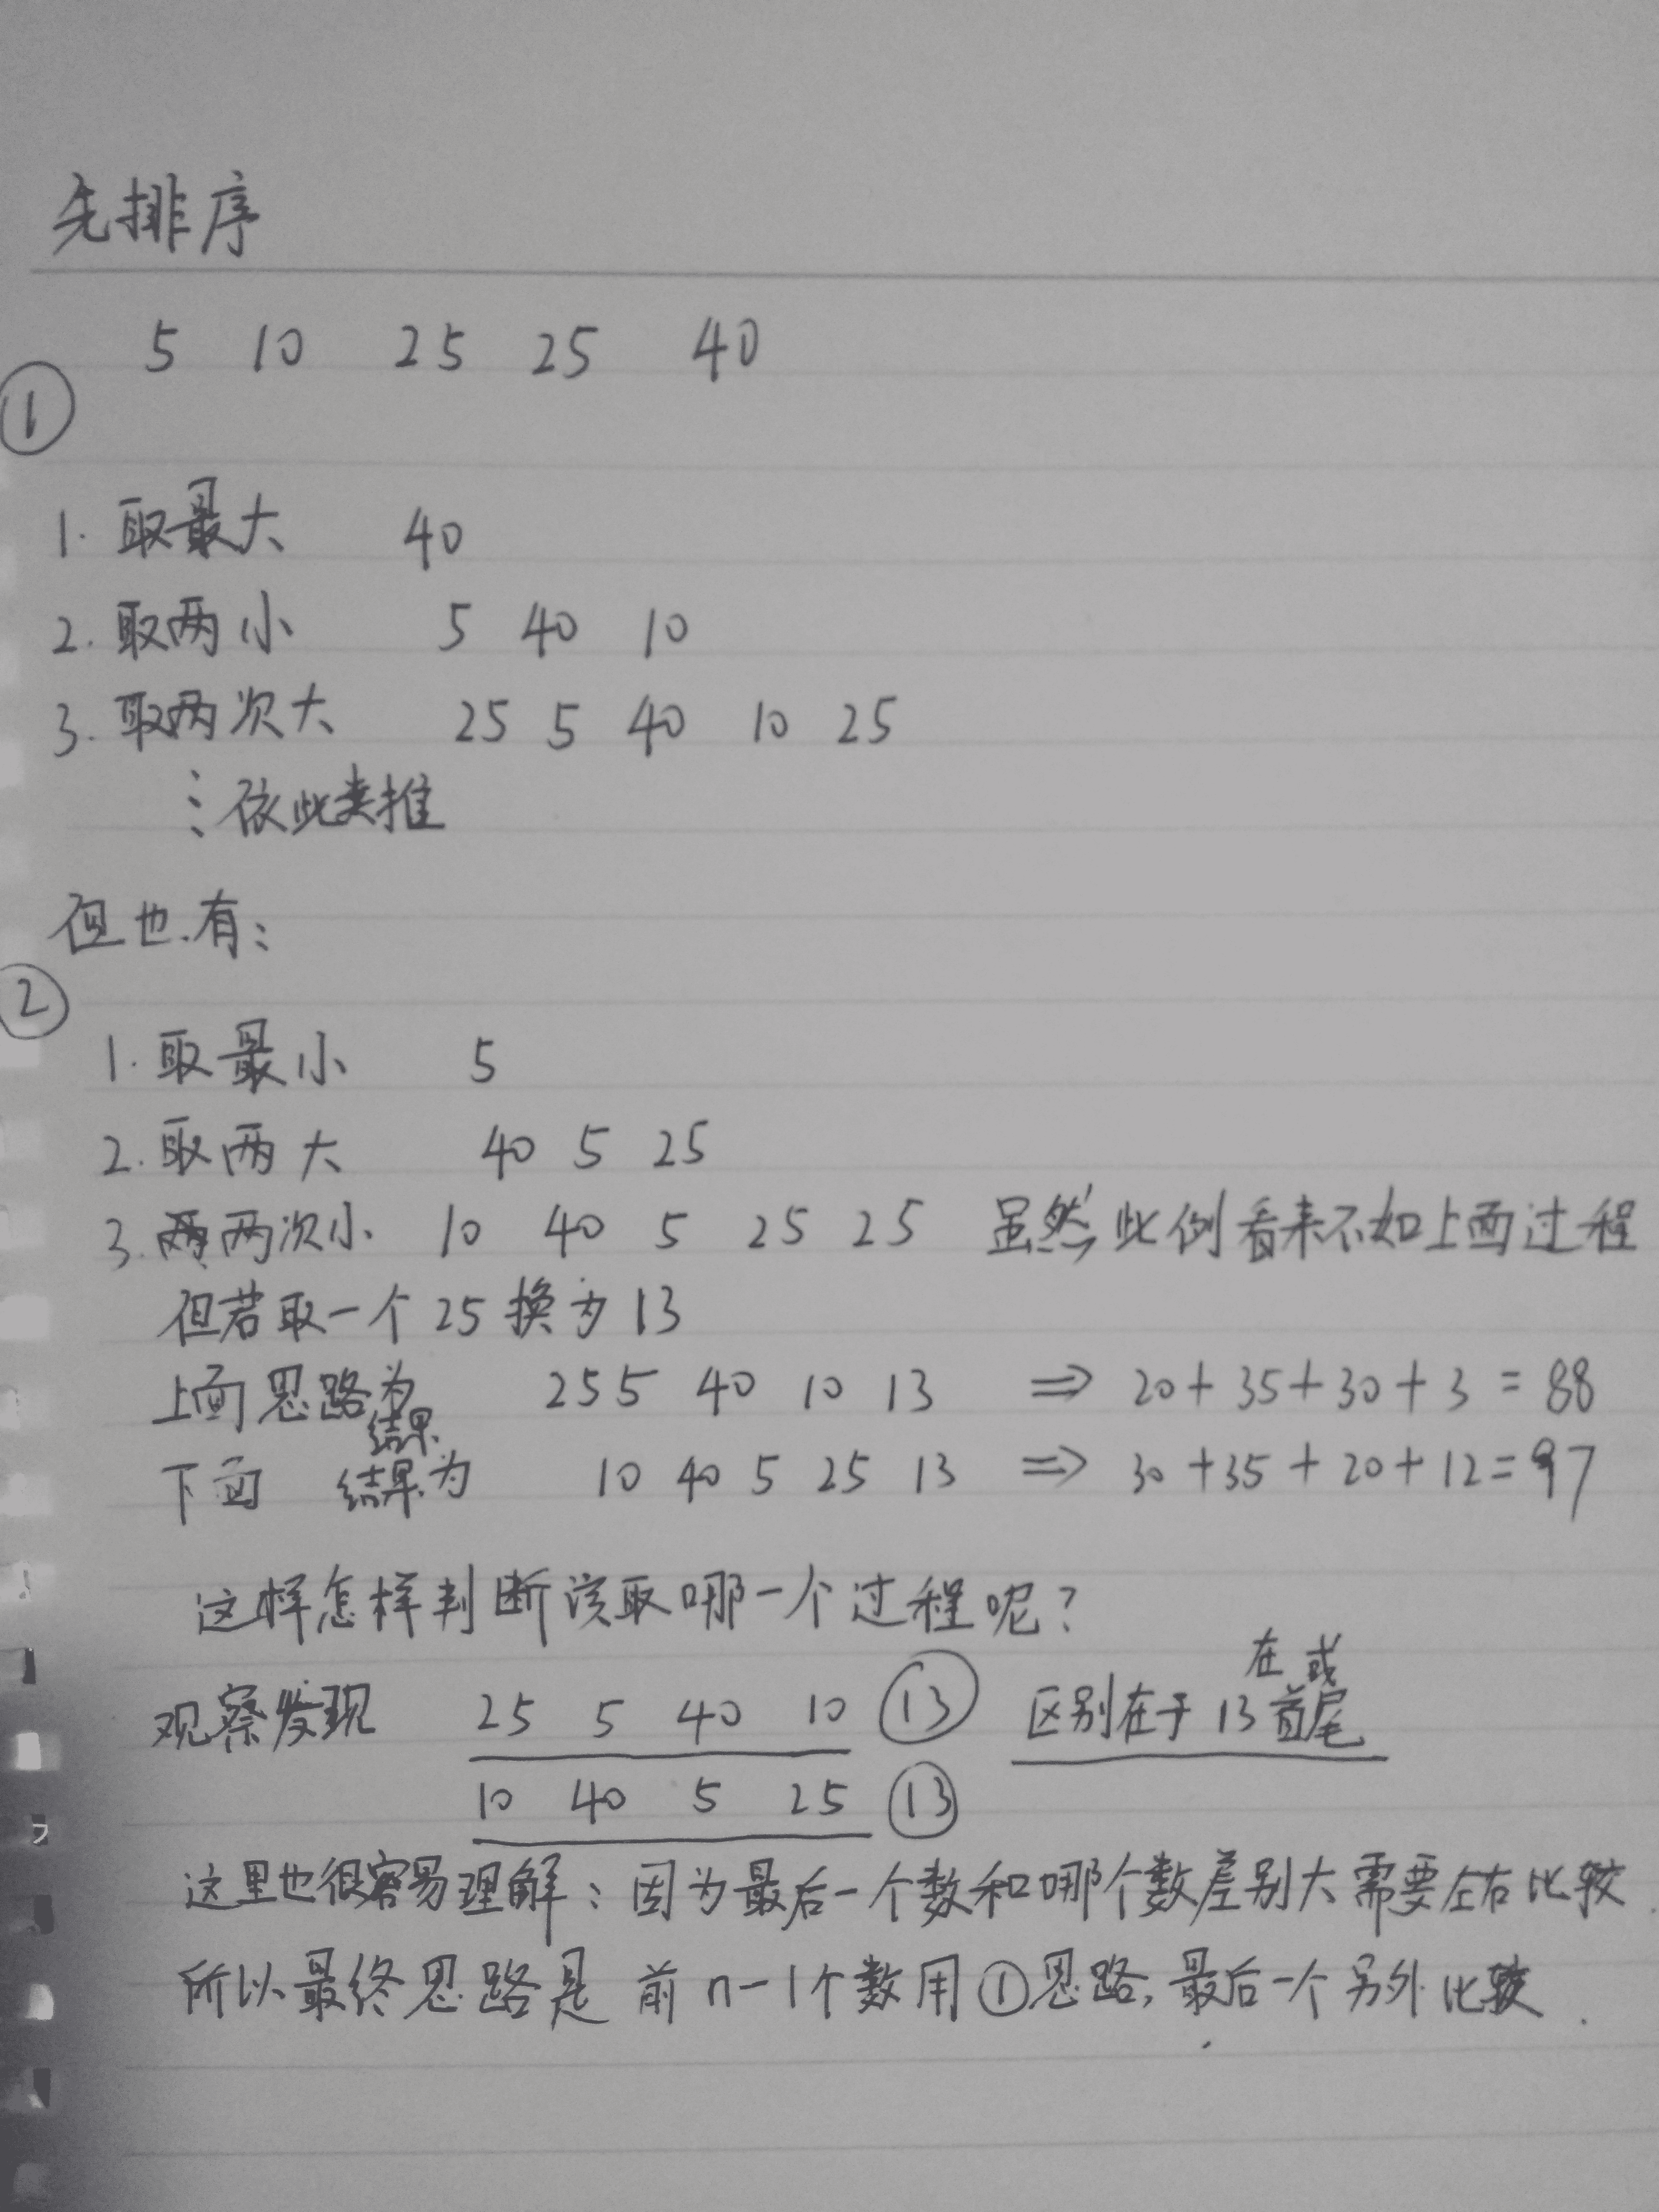 先排序
5 10 25 25 40
①
1. 取最大 40
2. 取两小 5 40 10
3. 取两次大 25 5 40 10 25
⋮ 依此类推
但也有:
②
1. 取最小 5
2. 取两大 40 5 25
3. 两次小 10 40 5 25 25 虽然此例看来不如上面过程
但若取一个25换为13
上面思路为结果 25 5 40 10 13 ⇒ 20+35+30+3=88
下面 结果为 10 40 5 25 13 ⇒ 30+35+20+12=97
这样怎样判断该取哪一个过程呢?
观察发现 25 5 40 10 ⑬ 区别在于13在首或尾
10 40 5 25 ⑬
这里也很容易理解:因为最后一个数和哪个数差别大需要左右比较
所以最终思路是 前n-1个数用①思路,最后一个另外比较.